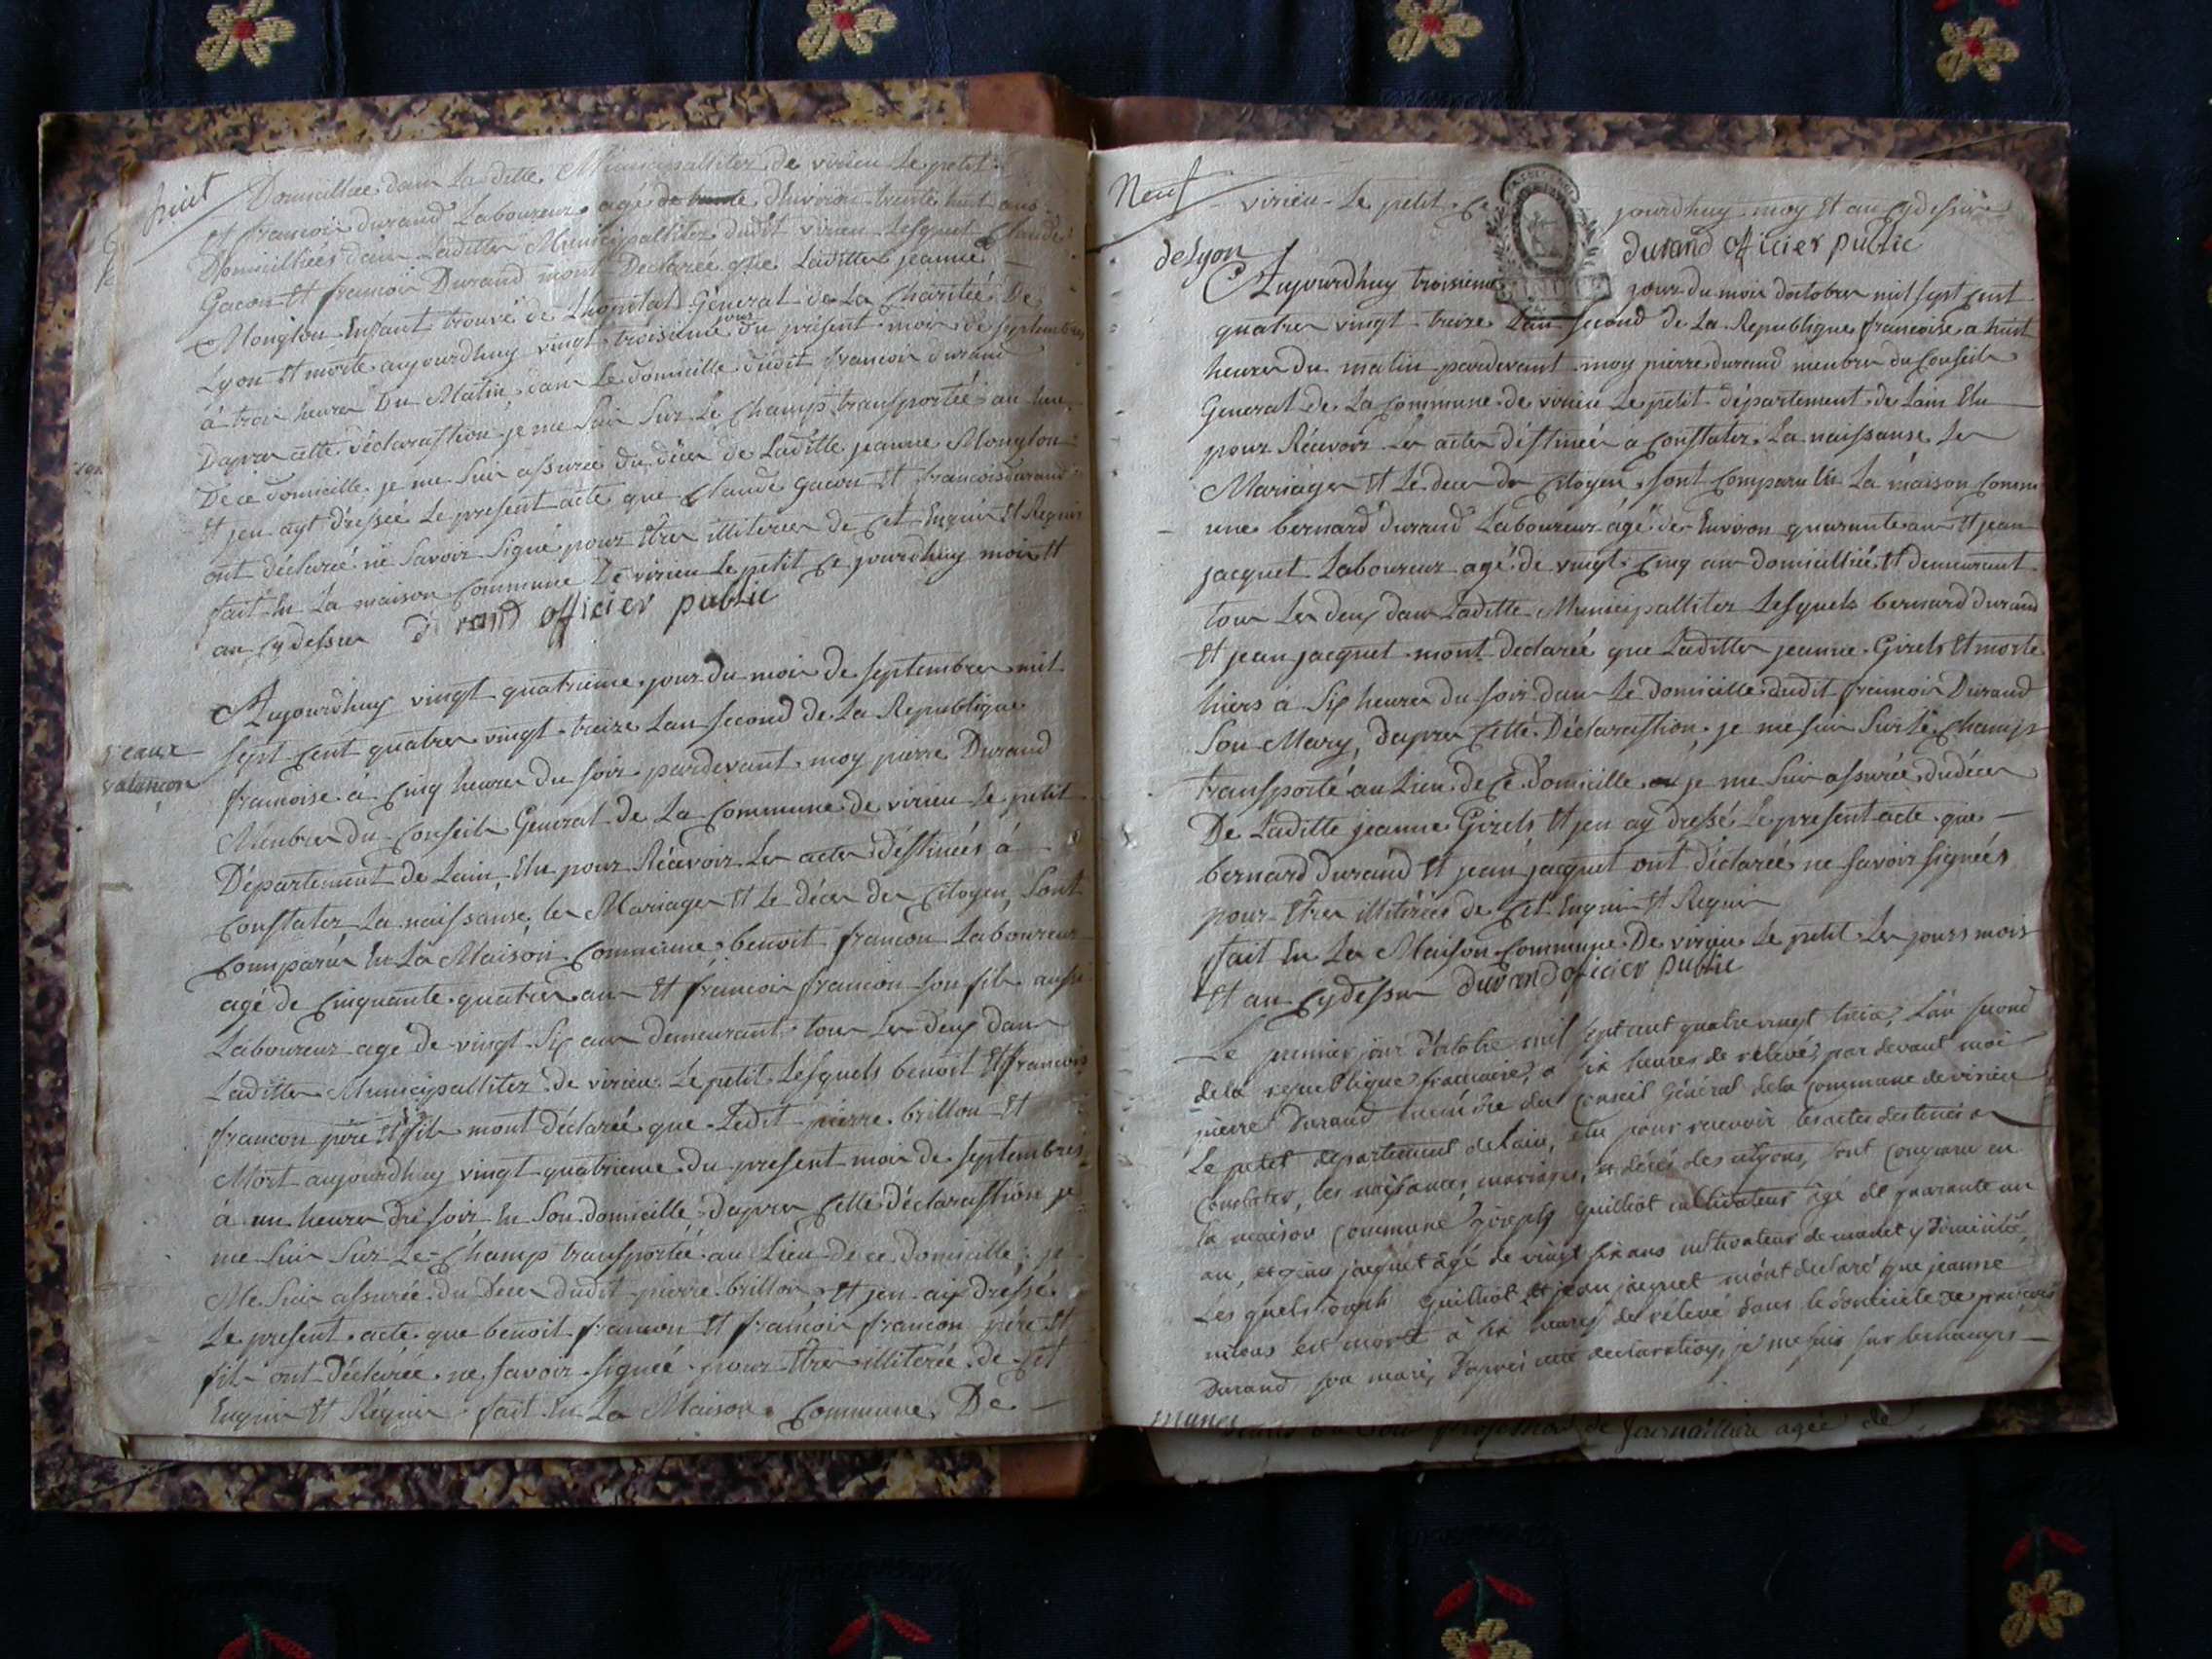 huit
Domicilliée dans Laditte Municipalliter de virieu Le petit
Et francois durand Laboureur agé d'Environ trente huit ans
Domicilliées dans Laditte Municipalliter dudit virieu Lesquel Claude
Gacon Et francois Durand mont Declarée que Laditte jeanne
Monglon Enfant trouvé de Lhopital Géneral de La Charitée De
Lyon Et morte aujourdhuy vingt troisieme jour du présent mois de septembre
à trois heures Du Matin dans Le domicille dudit francois durand
Dapres cette déclarastion je me suis sur Le Champ transportée au lieu
De ce domicille je me suis assurée du décès de Laditte jeanne Monglon
Et jen ayt dressée Le present acte que Claude gacon Et francois durand
ont déclarée ne savoir signé pour Etres illiterées de Cet Enquis Et Requis
fait En La maison Commune De virieu Le petit Ce jourdhuy mois Et
an Cy dessus durand officier public
Aujourdhuy vingt quatrieme jour du mois de septembre mil
sept Cent quatre vingt treize Lan second de La Republique
francoise à Cinq heures du soir pardevant moy pierre Durand
Membre du Conseil General de La Commune de virieu Le petit
Département de Lain, Elu pour Récevoir Les actes déstinées à
Constater La naissanse, les Mariages Et Le déces des Citoyen, Sont
Comparus En La Maison Commune benoit francon Laboureur
agé de Cinquante quatre ans Et francois francon son fils aussi
Laboureur agé de vingt Six ans demeurant tous Les deux dans
Laditte Municipalliter de virieu Le petit Lesquels benoit Et francois
francon pere Et fils mont déclarée que Ledit pierre brillon Et
Mort aujourdhuy vingt quatrieme du present mois de septembre
à un heure du soir En Son domicille dapres Cette déclarastion je
me suis Sur Le Champ transportée au Lieu de ce domicille, je
Me suis assurée du Deces dudit pierre brillon, Et jen ay dressé
Le present acte que benoit francon Et francois francon pere Et
fils ont Déclarée ne savoir signée pour Etre illiterée de Cet
Enquis Et Réquis fait En La Maison Commune De
Neuf
virieu Le petit Ce jourdhuy moy Et an Cydessus
durand officier public
de Lyon
Aujourdhuy troisieme jour du mois doctobre mil sept Cent
quatre vingt treize Lan second de La Republique francoise a huit
heures du matin pardevant moy pierre durand menbre du Conseil
General de La Commune de virieu Le petit département de Lain Elu
pour Récevoir Les actes déstinées a Constater La naissanse Les
Mariages Et Le deces de Citoyen, sont Comparu En La maison Comm
une bernard durand Laboureur agé de Environ quarante ans Et jean
jacquet Laboureur agé de vingt Cinq ans domicilliée Et demeurant
tous Les deux dans Laditte Municipalliter Lesquels bernard durand
Et jean jacquet mont declarée que Laditte jeanne Girels Et morte
hiers à Six heures du soir dans Le domicille dudit francois Durand
Son Mary, dapres Cette Déclarastion, je me suis Sur Le Champ
transporté au Lieu de Ce domicille je me suis assurée du déces
De Laditte jeanne Girels Et jen ay dressé Le present acte que
bernard durand Et jean jacquet ont déclarée ne savoir signées
pour Etres illitérées de Cet Enquis Et Requis
fait En La Maison Commune De virieu Le petit Les jours mois
Et an Cydessus durand officier public
Le premier jour d'octobre mil sept cent quatre vingt treize, L'an second
de la republique francaise, a six heures de relevé, par devant moi
pierre Durand membre du Conseil Général de la Commune de virieu
Le petit departement de Lain, élu pour recevoir les actes destinés a
Constater, les naissances, mariages, et décés des citoyens, sont comparu en
la maison commune joseph Guilliot cultivateur âgé de quarante un
an, et jean jacquet âgé de vingt six ans cultivateur demeurant y domicilié,
Les quels joseph Guilliot et jean jacquet m'ont declaré que jeanne
est morte à six heures de relevé dans le domicile de francois
Durand son mari, D'après cette declaration, je me suis sur le champs
de journaillier agée de